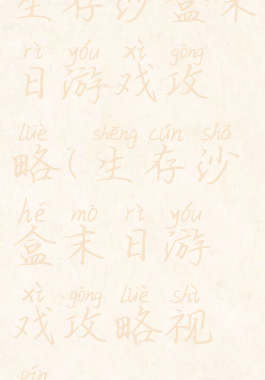 生存沙盒末
rì yóu xì gōng
日游戏攻
lüè shēng cún shā
略(生存沙
hé mò rì yóu
盒末日游
xì gōng lüè shì
戏攻略视
pín